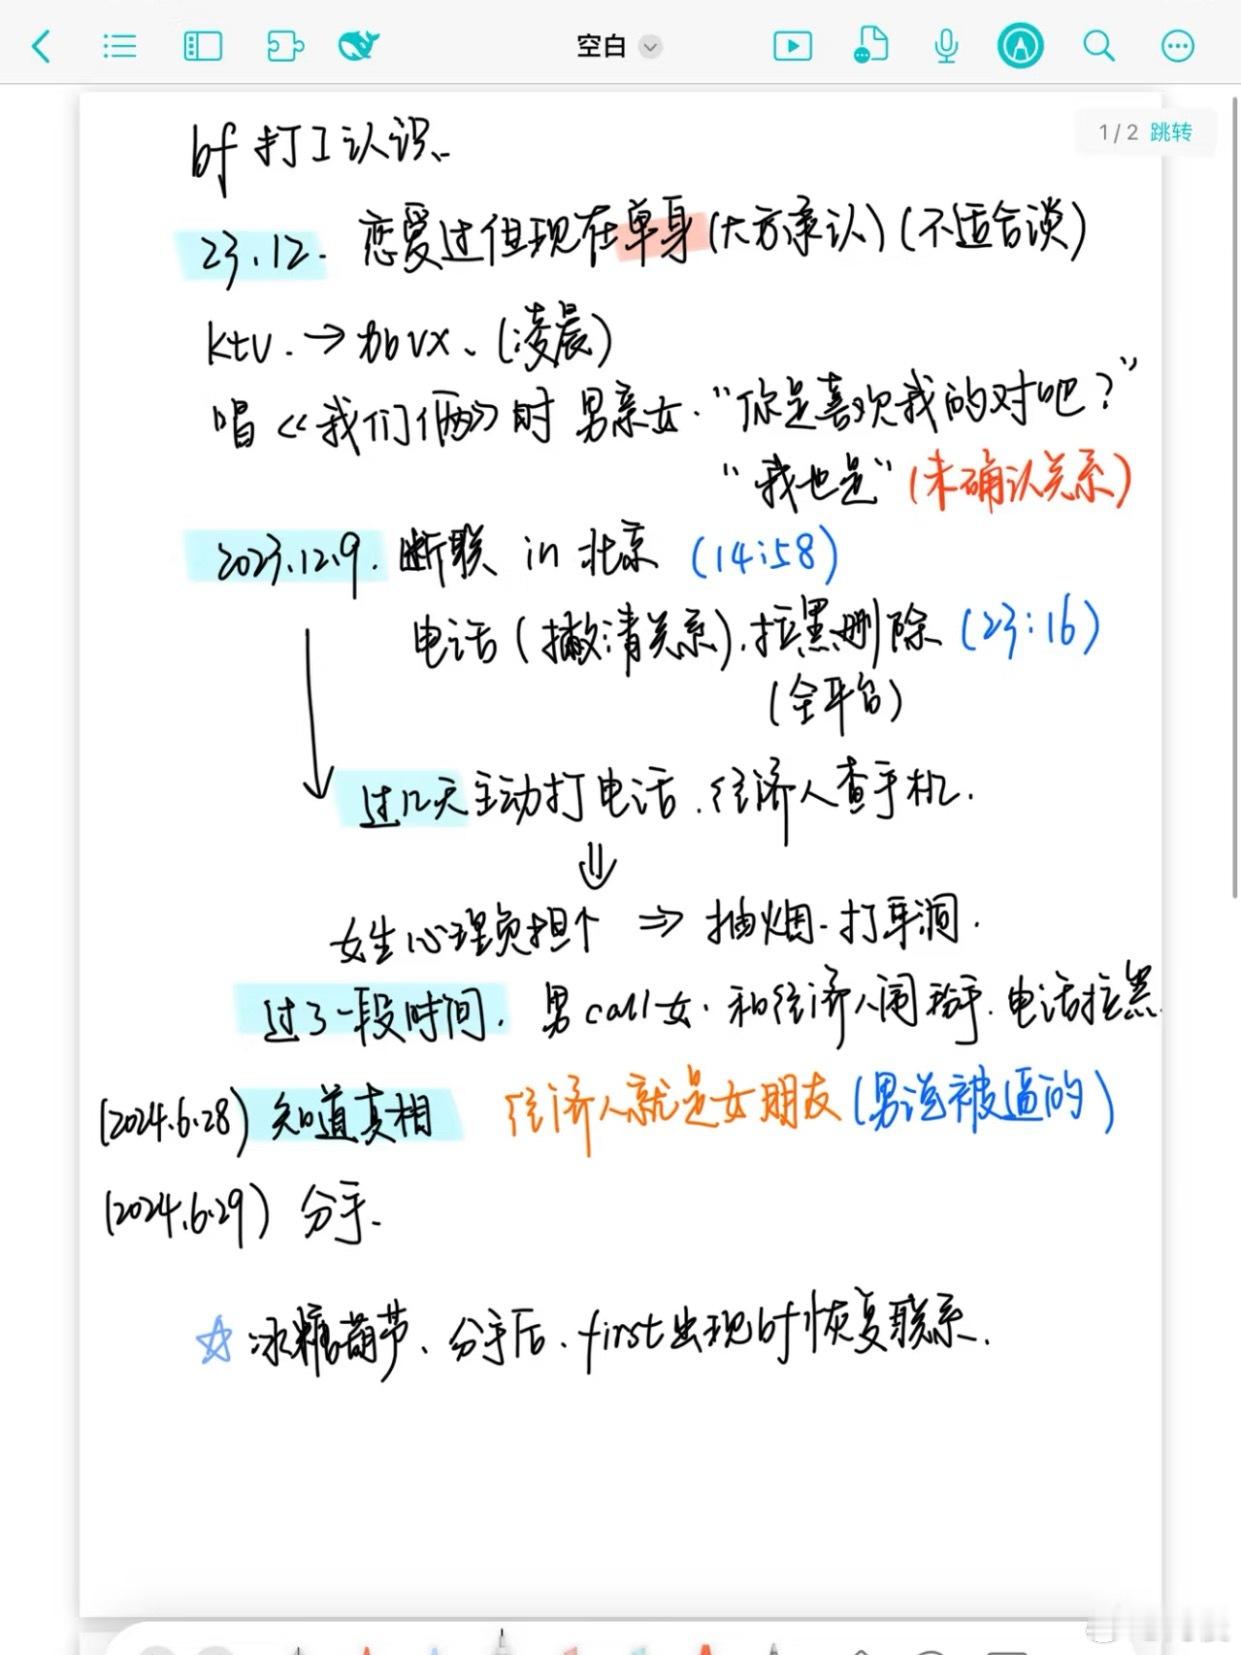 空白
1/2 跳转
bf 打工认识.
23.12. 恋爱过但现在单身(大方承认)(不适合谈)
ktv. → 加vx、(凌晨)
唱《我们俩》时 男亲女. "你是喜欢我的对吧?"
"我也是" (未确认关系)
2023.12.9. 断联 in 北京 (14:58)
电话(撇清关系). 拉黑删除 (23:16)
(全平台)
过几天主动打电话. 经济人查手机.
⇓
女生心理负担个 ⇒ 抽烟. 打耳洞.
过了一段时间. 男call女. 和经济人闹掰. 电话拉黑
(2024.6.28) 知道真相 经济人就是女朋友(男说被逼的)
(2024.6.29) 分手.
☆ 冰糖葫芦、分手后. first出现bf恢复联系.